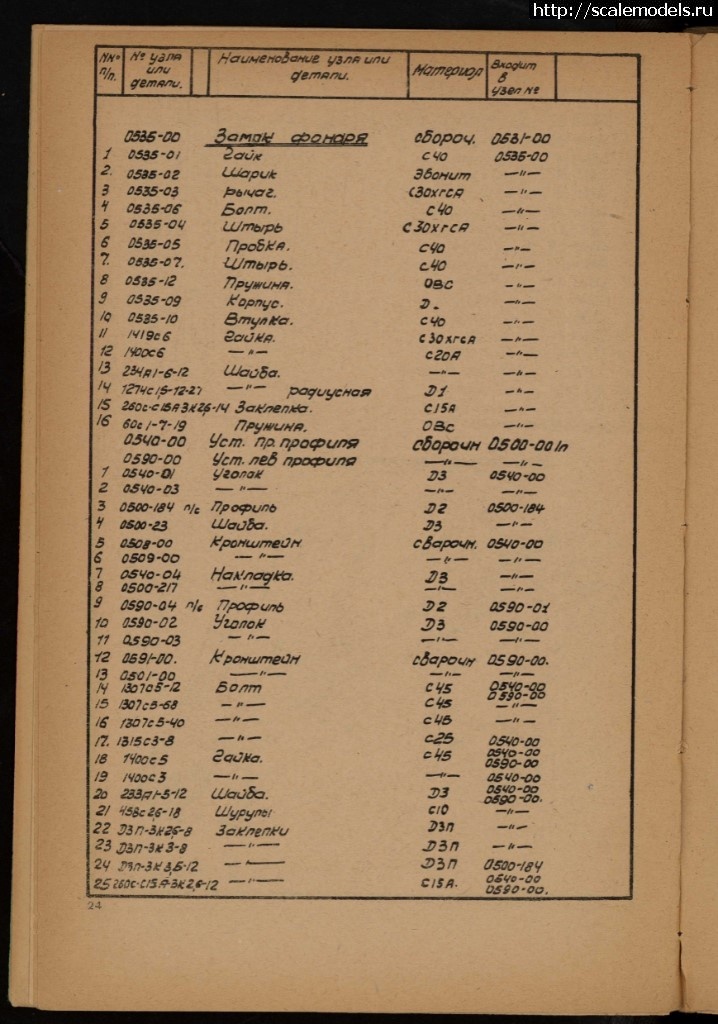 http://scalemodels.ru
NNº п/п. № узла или детали. Наименование узла или детали. Материал Входит в узел №
0535-00 Замок фонаря сбороч. 0531-00
1 0535-01 Гайк С40 0535-00
2. 0535-02 Шарик Эбонит —"—
3 0535-03 Рычаг. С30ХГСА —"—
4 0535-06 Болт. С40 —"—
5 0535-04 Штырь С30ХГСА —"—
6 0535-05 Пробка. С40 —"—
7. 0535-07. Штырь. С40 —"—
8 0535-12 Пружина. ОВС —"—
9 0535-09 Корпус. Д. —"—
10 0535-10 Втулка. С40 —"—
11 1419с6 Гайка. С30ХГСА —"—
12 1400с6 —"— С20А —"—
13 234А1-6-12 Шайба. —"— —"—
14 1274с15-12-27 —"— радиусная Д1 —"—
15 260с-С15А3К26-14 Заклепка. С15А —"—
16 60с1-7-19 Пружина. ОВС —"—
0540-00 Уст. пр. профиля сбороин 0500-00/п
0590-00 Уст. лев профиля —"— —"—
1 0540-01 Уголок Д3 0540-00
2 0540-03 —"— —"— —"—
3 0500-184 п/с Профиль Д2 0500-184
4 0500-23 Шайба. Д3 —"—
5 0508-00 Кронштейн свароин. 0540-00
6 0509-00 —"— —"— —"—
7 0540-04 Накладка. Д3 —"—
8 0500-217 —"— —"— —"—
9 0590-04 п/с Профиль Д2 0590-01
10 0590-02 Уголок Д3 0590-00
11 0590-03 —"— —"— —"—
12 0591-00. Кронштейн свароин 0590-00.
13 0501-00 —"— —"— —"—
14 1307с5-12 Болт С45 0540-00 0590-00
15 1307с5-68 —"— С45 —"—
16 1307с5-40 —"— С45 —"—
17. 1315с3-8 —"— С25 0540-00
18 1400с5 Гайка. С45 0540-00 0590-00
19 1400с3 —"— —"— 0540-00
20 233А1-5-12 Шайба. Д3 0540-00 0590-00.
21 458с26-18 Шурупы С10 —"—
22 Д3П-3К26-8 Заклепки Д3П —"—
23 Д3П-3К3-8 —"— Д3П —"—
24 Д3П-3К3,5-12 —"— Д3П 0500-184
25 260с-С15А-3К2,6-12 —"— С15А. 0540-00 0590-00.
24